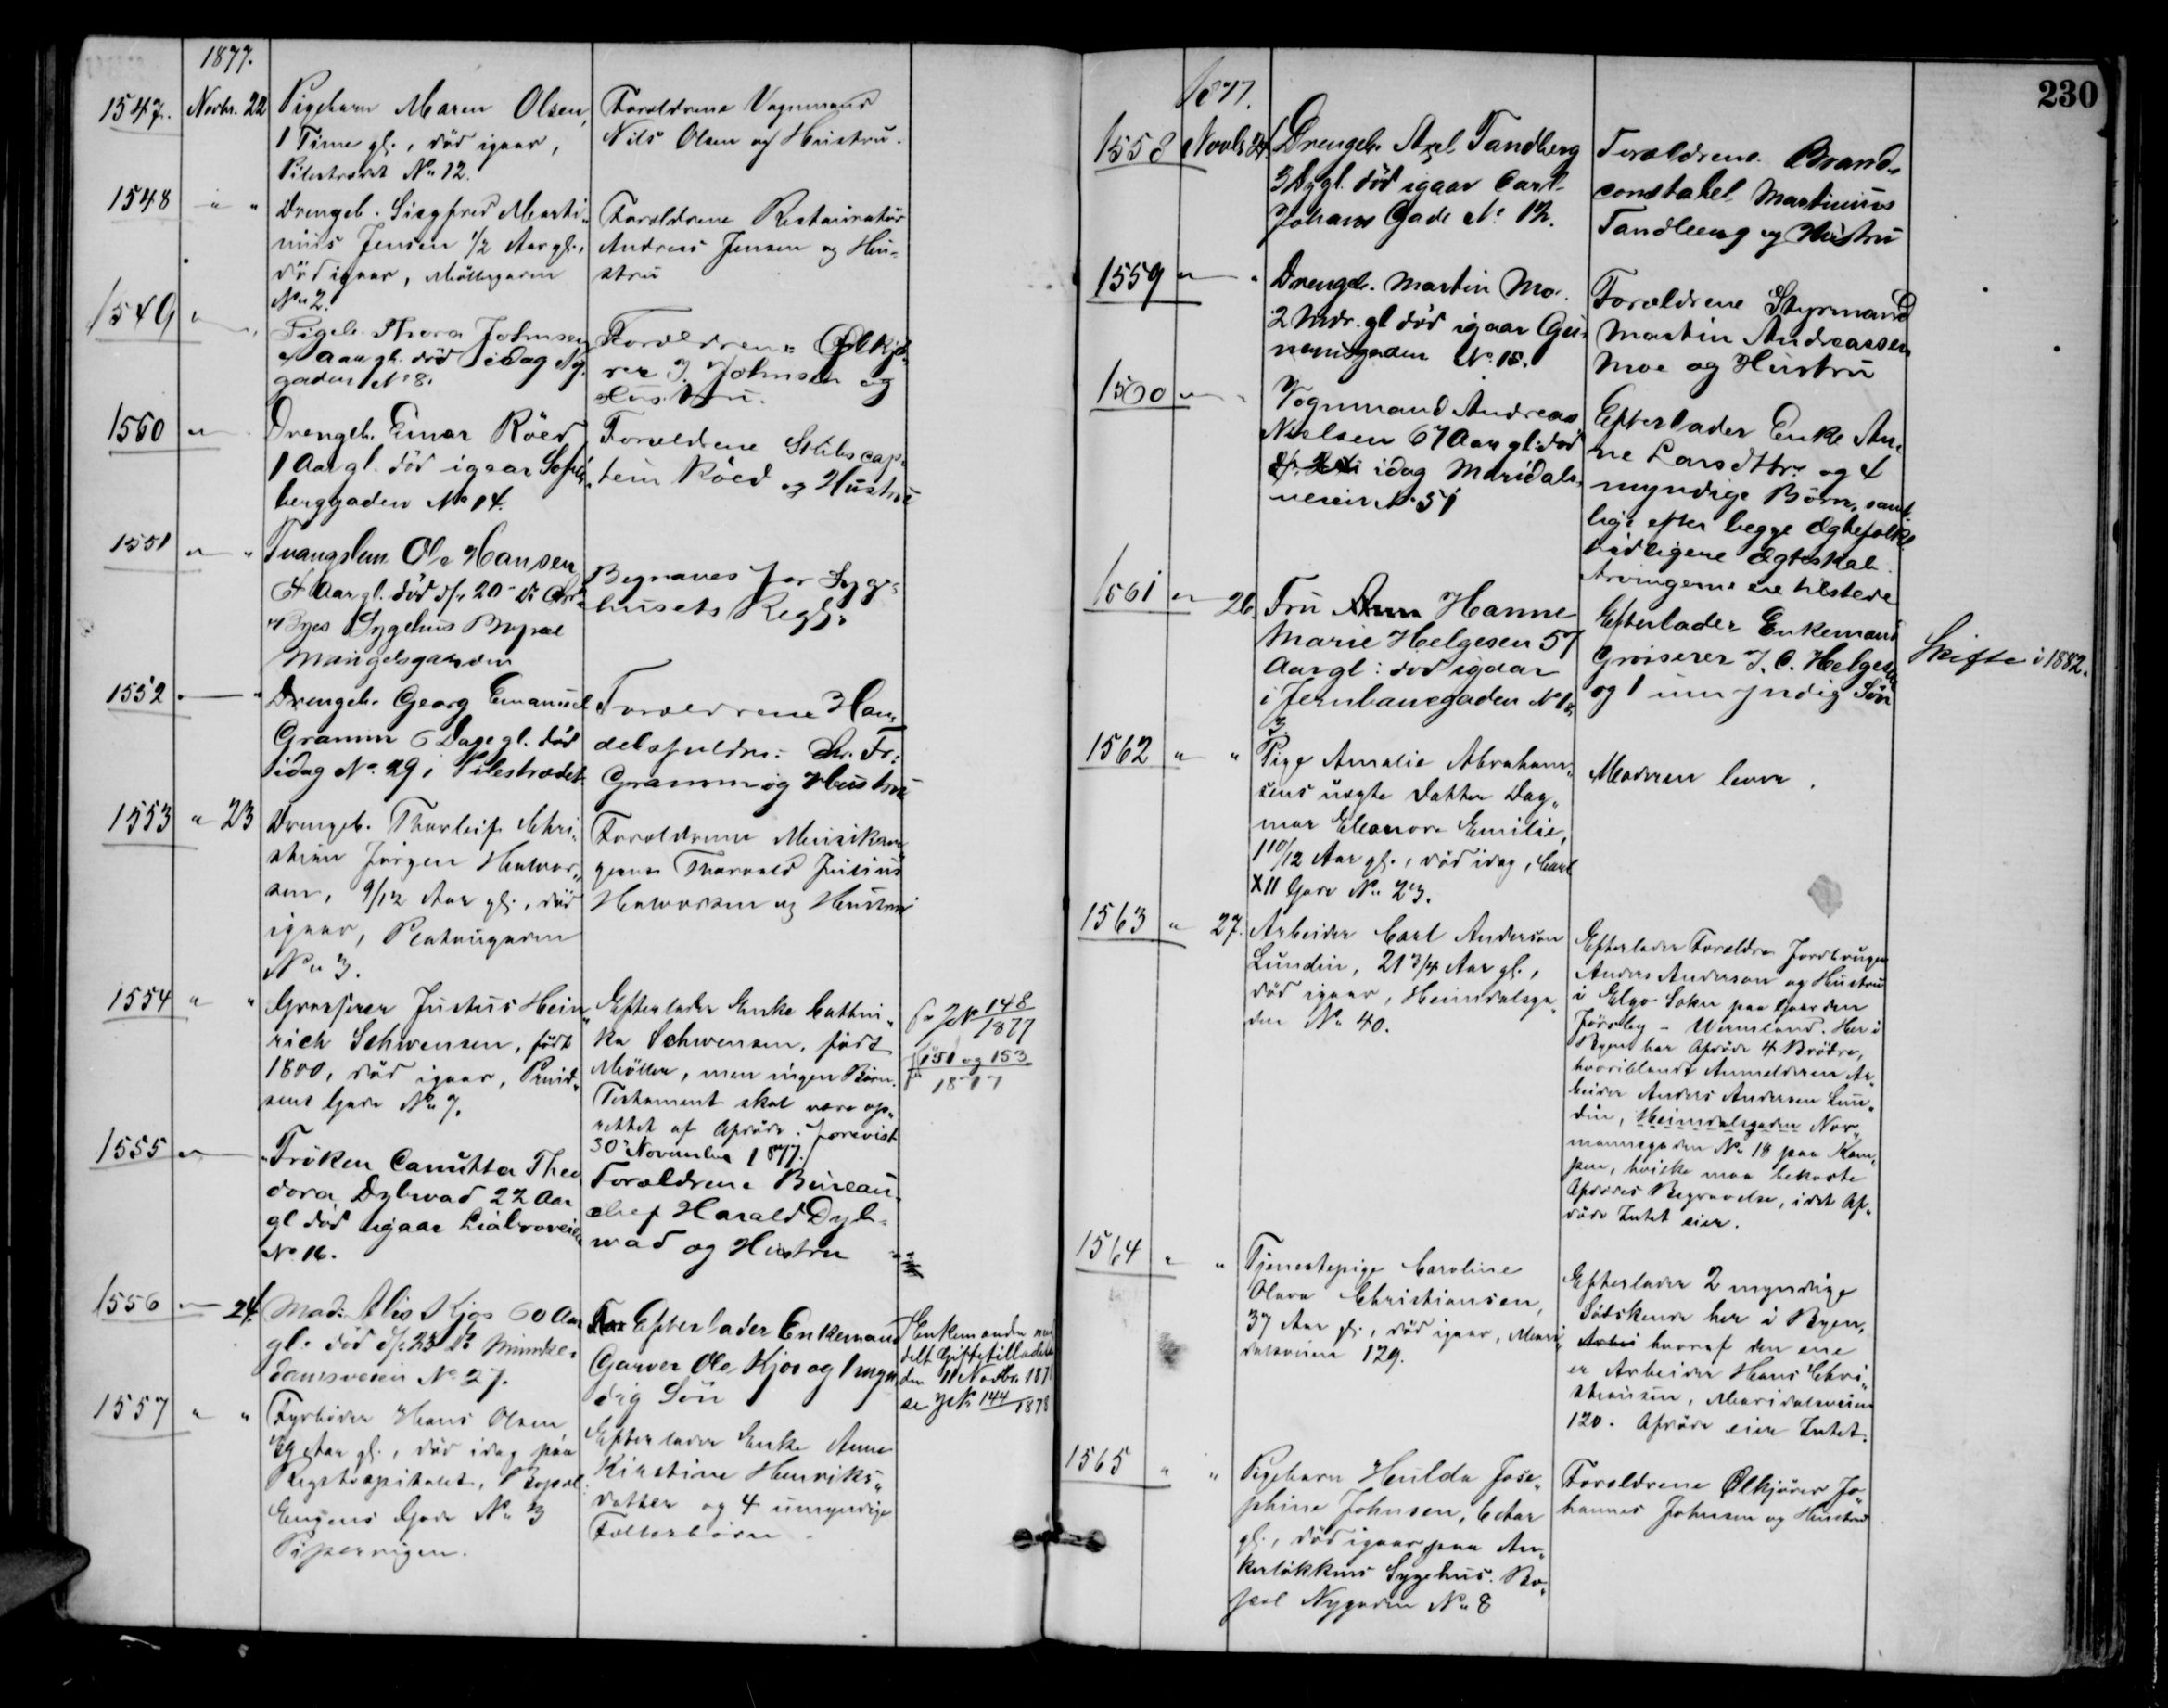 1877.
1547. Novbr. 22 Pigebarn Maren Olsen,
1 Time gl., död igaar,
Pilestrædet No 12.
Forældrene Vognmand
Nils Olsen og Hustru.
1548 " " Drengeb. Siegfred Marti„
nius Jensen 1/2 Aar gl.,
död igaar, Möllegaden
No 2.
Forældrene Restauratör
Andreas Jensen og Hu„
stru
1549 " Pigeb. Thora Johnsen
Aar gl. död idag Ny„
gaden No 8.
Forældrene Ølkjö„
rer J. Johnsen og
Hustru.
1560 " Drengeb. Einar Röed
1 Aar gl. död igaar Sofien
berggaden No 14.
Forældrene Skibscap„
tein Röed og Hustru
1551 " " Tvangslem Ole Hansen
Aar gl. död d/s 20 ds Chr„
a Byes Sygehus Bopæl
Mangelsgaarden
Begraves for Syge„
husets Regg.
1552 " " Drengeb. Georg Emanuel
Gramm 6 Dage gl. död
idag No 29 i Pilestrædet
Forældrene Han„
delsfuldm: Chr. Fr:
Gramm og Hustru
1553 " 23 Drengeb. Thorleif Chri„
stian Jörgen Halvor„
sen, 9/12 Aar gl., död
igaar, Platougaden
No 3.
Forældrene Musikser„
geant Thorvald Julius
Halvorsen og Hustru
1554 " " Grosserer Justus Hein„
rich Schwensen, födt
1800, död igaar, Pund„
sens Gade No 7.
Efterlader Enke Cathin„
ka Schwensen, födt
Möller, men ingen Börn.
Testament skal være op„
rettet af Afdöde. Forevist
30te November 1877.
Se JN 148/1877
151 og 153
1877
1555 " Fröken Canutta Theo
dora Dybwad 22 Aar
gl död igaar Liabroveien
No 16.
Forældrene Bureau„
chef Harald Dyb„
wad og Hustru
1556 " 24 Mad: Alis Kjos 60 Aar
gl. död d/s 23 ds Munke„
damsveien No 27.
Efterlader Enkemand
Garver Ole Kjos og 1 myn
dig Sön
Enkemanden med
delt Giftetilladelse
den 11 Novbr. 1878
se JN 144/1878
1557 " " Fyrböder Hans Olsen,
Aar gl., död idag paa
Rigshospitalet, Bopæl:
Engens Gade No 3
Pipervigen.
Efterlader Enke Anne
Kirstine Henriks„
datter og 4 umyndige
Fællesbörn.
230
1877.
1558 Novbr 24 Drengeb. Axel Tandberg
3 Dg gl. död igaar Carl
Johans Gade No 12.
Forældrene Brand„
constabel Martinius
Tandberg og Hustru
1559 " " Drengeb. Martin Moe
2 Mdr. gl död igaar Grü„
nersgaden No 15.
Forældrene Styrmand
Martin Andreassen
Moe og Hustru
1560 " " Vognmand Andreas
Nielsen 67 Aar gl. död
idag Maridals„
veien No 51
Efterlader Enke An„
ne Larsdttr. og 4
myndige Börn, samt
lige efter begge Ægtefolks
tidligere Ægteskab.
Arvingerne ere tilstede
1561 " 26 Fru Anna Hanne
Marie Helgesen 57
Aar gl: död igaar
i Jernbanegaden No 1 &
3.
Efterlader Enkemand
Grosserer J. C. Helgesen
og 1 umyndig Sön
Skifte i 1882.
1562 " " Pige Amalie Abraham„
sens uægte Datter Dag„
mar Eleanore Emilie,
1 10/12 Aar gl., död idag, Carl
XII Gade No 23.
Moderen lever.
1563 " 27. Arbeider Carl Anderson
Lundin, 21 3/4 Aar gl.,
död igaar, Heimdalsga„
den No 40.
Efterlader Forældre Jordbruger
Anders Anderson og Hustru
i Elgo Soken paa Gaarden
Jörsby - Wermland. Her i
Byen har Afdöde 4 Brödre,
hvoriblandt Anmelderen Ar„
beider Anders Andersen Lun„
din, Heimdalsgaden Nor„
mannsgaden No 18 paa Kam„
pen, hvilke maa bekoste
Afdödes Begravelse, idet Af„
döde Intet eier.
1564 " " Tjenestepige Caroline
Olava Christiansen,
37 Aar gl., död igaar, Mari„
dalsveien 129.
Efterlader 2 myndige
Södskende her i Byen,
Arbei hvoraf den ene
er Arbeider Hans Chri„
stiansen, Maridalsveien
120. Afdöde eier Intet.
1565 " " Pigebarn Hulda Jose„
phine Johnsen, 6 Aar
gl., död igaar paa An„
kerlökkens Sygehus. Bo„
pæl Nygaden No 8
Forældrene Ølkjörer Jo„
hannes Johnsen og Hustru